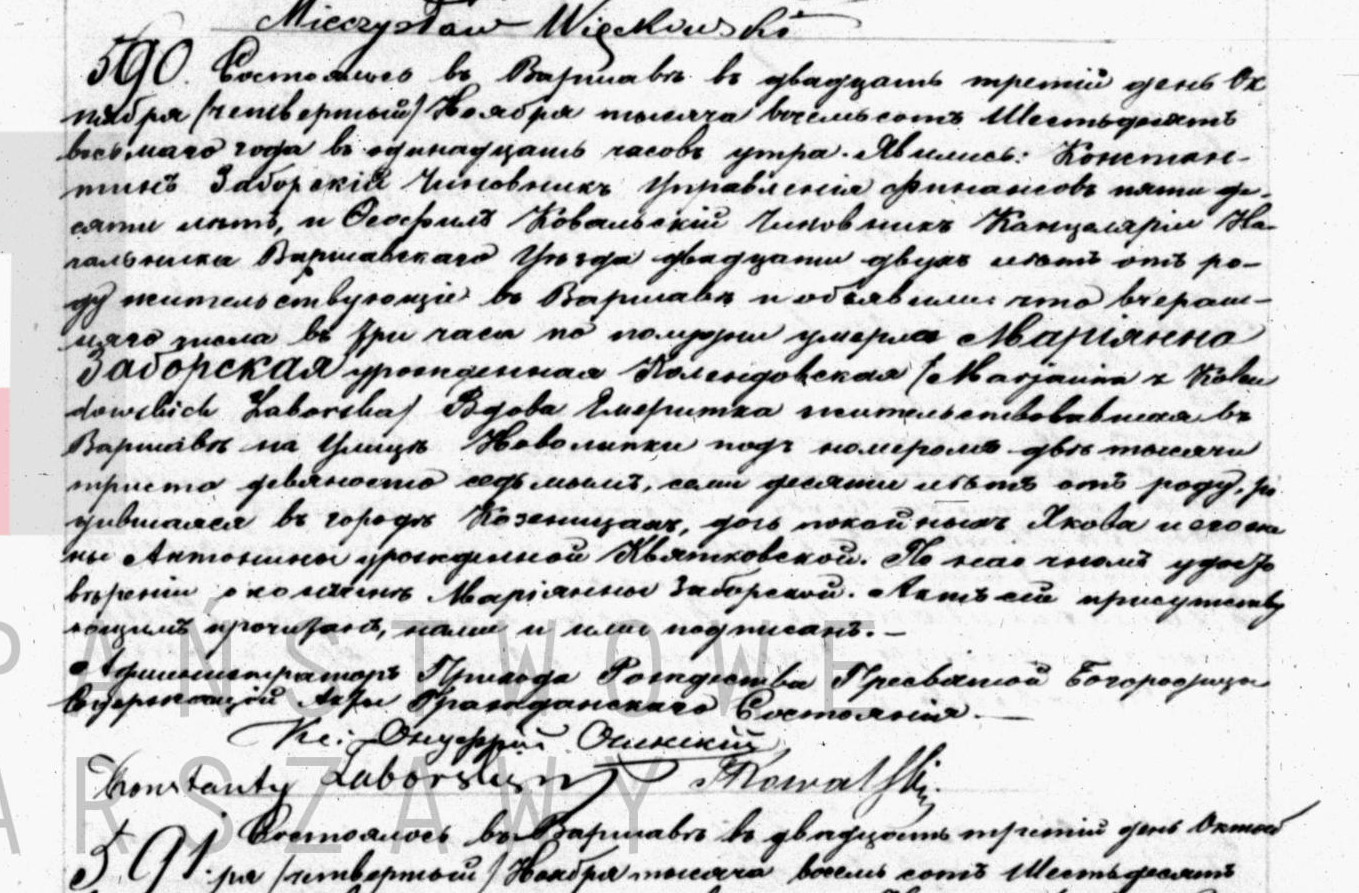 Mieczysław Więckowski
590. Состоялось въ Варшавѣ въ двадцать третій день Ок
тября /четвертый/ Ноября тысяча восемьсотъ Шестьдесятъ
восьмаго года въ одинадцать часовъ утра. Явились: Констан-
тинъ Заборскій Чиновникъ Управленія Финансовъ пяти де-
сяти лѣтъ, и Ѳеофилъ Ковальскій Чиновникъ Канцеляріи На-
чальника Варшавскаго Уѣзда двадцати двухъ лѣтъ отъ ро-
ду жительствующіе въ Варшавѣ и объявили: что вчераш-
няго числа въ три часа по полудни умерла Маріянна
Заборская урожденная Колендовская /Marjanna z Kolen
dowskich Zaborska/ Вдова Емеритка жительствовавшая въ
Варшавѣ на Улицѣ Новолипки подъ номеромъ двѣ тысячи
триста девяносто седьмымъ, семи десяти лѣтъ отъ роду, ро
дившаяся въ городѣ Козеницахъ, дочь покойныхъ Якова и его же
ны Антонины урожденной Квятковской. По настномъ удосто
вѣреніи о кончинѣ Маріянны Заборской. Актъ сей присутству
ющимъ прочитанъ, нами и ими подписанъ. —
Администраторъ Прихода Рождества Пресвятой Богородицы
Содержащій Акты Гражданскаго Состоянія. —
Кс: Онуфрій
Konstanty Zaborski TKowalski
591. Состоялось въ Варшавѣ въ двадцать третій день Октяб
ря /четвертый/ Ноября тысяча восемь сотъ Шестьдесятъ
PAŃSTWOWE
ARSZAWY